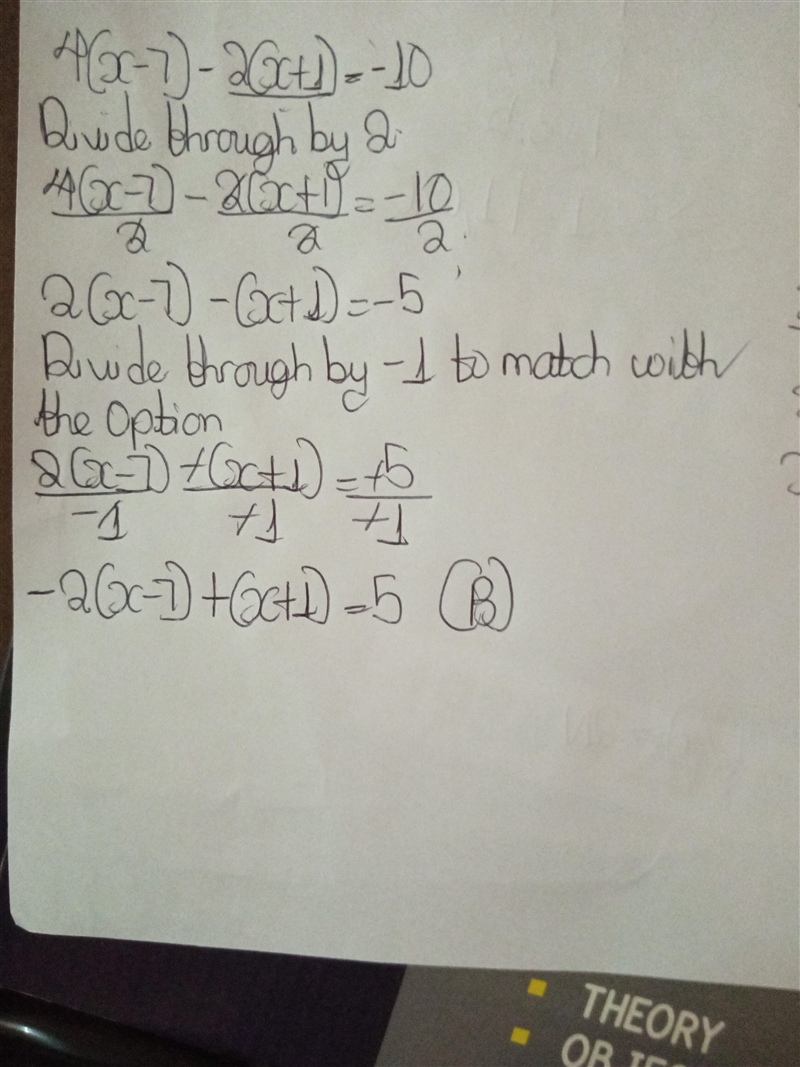 4(x-7) - 2(x+1) = -10
Divide through by 2.
4(x-7)/2 - 2(x+1)/2 = -10/2
2(x-7) - (x+1) = -5
Divide through by -1 to match with
the Option
2(x-7)/-1 +(x+1)/+1 = +5/+1
-2(x-7) + (x+1) = 5 (B)
THEORY